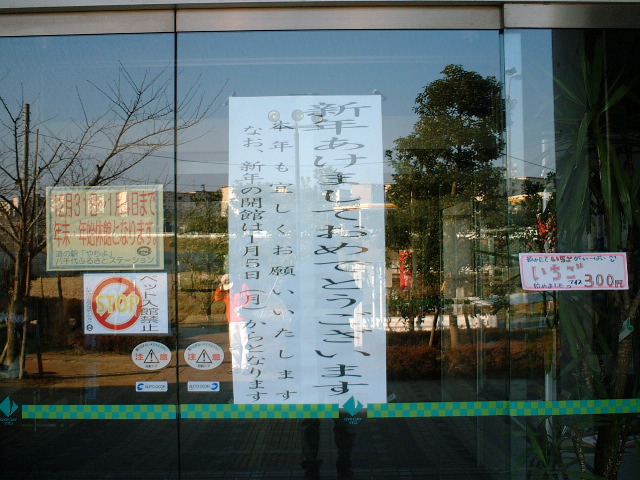 新年あけましておめでとうございます
本年も宜しくお願いいたします
なお、新年の開館は1月5日（月）からになります
12月31日〜1月4日まで
年末・年始休館となります
道の駅「やちよ」
八千代ふるさとステーション
STOP
ペット入館禁止
注意
注意
AUTO DOOR
AUTO DOOR
いちご
300円